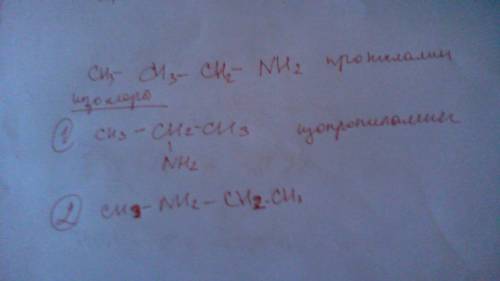 CH3- CH3- CH2- NH2 пропиламин
изомеры
① CH3-CH2-CH3 изопропиламин
NH2
② CH3-NH2-CH2-CH3